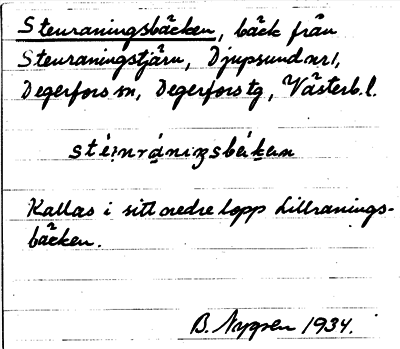 Stenraningsbäcken, bäck från
Stenraningstjärn, Djupsund nr 1,
Degerfors sn, Degerfors tg, Västerb. l.
Kallas i sitt nedre lopp Lillranings-
bäcken.
B. Nygren 1934.